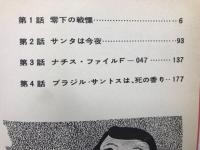 第1話 零下の戦慄……6
第2話 サンタは今夜……93
第3話 ナチス・ファイルF－047……137
第4話 ブラジル・サントスは、死の香り……177